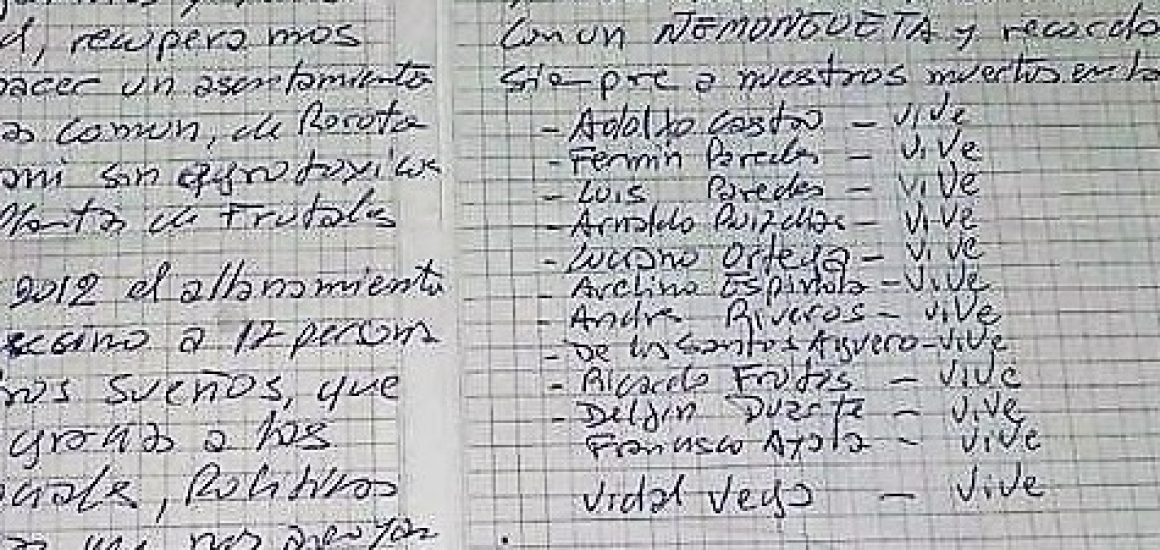 d, recuperamos
hacer un asentamiento
as comun, de Poroto
sin agrotoxicos
Planta de Frutales
2012 el allanamiento
sesino a 12 persona
ros sueños, que
gracias a las
ociale, Politicos
nos apoyar
comun ÑEMONGUETA y recordo
siempre a nuestros muertos en la
- Adolfo Castro - Vive
- Fermin Paredes - ViVe
- Luis Paredes - ViVe
- Arnaldo Ruiz Diaz - ViVe
- Luciano Ortega - ViVe
- Avelino Espinola - ViVe
- Andre Riveros - ViVe
- De los Santos Aguero - ViVe
- Ricardo Frutos - ViVe
- Delfin Duarte - ViVe
Francisco Ayala - ViVe
Vidal Vega - ViVe